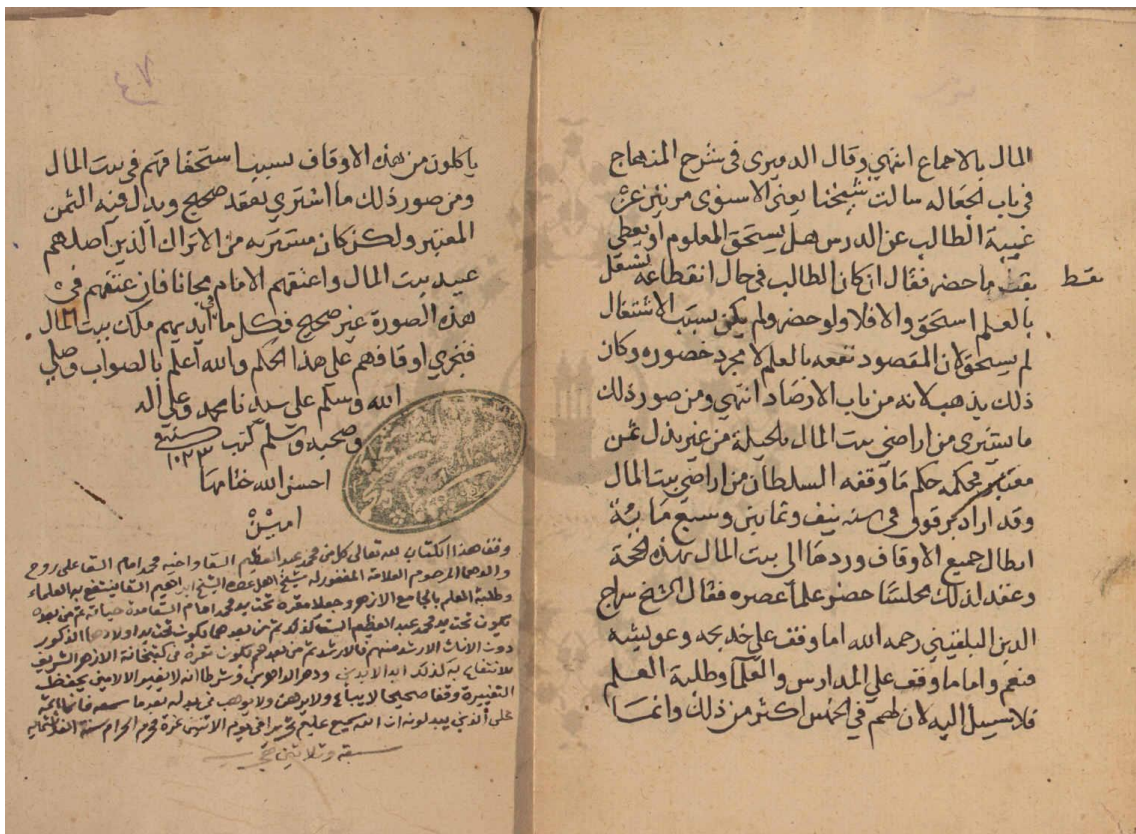 المال بالاجماع انتهي وقال الدميرى فى شرح المنهاج
فى باب الجعاله سالت شيخنا يعنى الاسنوى مرتين عن
غيبة الطالب عن الدرس هل يستحق المعلوم او يعطى
بقسط ما حضر فقال ان كان الطالب فى حال انقطاعه يشتغل
بقسط
بالعلم استحق والا فلا ولو حضر ولم يكن بسبب الاشتغال
لم يستحق لان المقصود نفعه بالعلم لا مجرد حضوره وكان
ذلك يذهب لانه من باب الارصاد انتهي ومن صور ذلك
ما يشترى من اراضي بيت المال بالحيلة من غير بذل ثمن
معتبر فحكمه حكم ما وقفه السلطان من اراضي بيت المال
وقد اراد برقوق فى سنه نيف وثمانين وسبع مائة
ابطال جميع الاوقاف وردها الى بيت المال بهذه الحجة
وعقد لذلك مجلسا حضره علماء عصره فقال الشيخ سراج
الدين البلقيني رحمه الله اما وقف علي خديجه وعويشه
فنعم واما ما وقف علي المدارس والعلما وطلبة العلم
فلا سبيل اليه لان لهم في الخمس اكثر من ذلك وانما
٤٧
ياكلون من هذه الاوقاف بسبب استحقاقهم فى بيت المال
ومن صور ذلك ما اشتري بعقد صحيح وبذل فيه الثمن
المعتبر ولكن كان مشتريه من الاتراك الذين اصلهم
عبيد بيت المال واعتقهم الامام مجانا فان عتقهم فى
هذه الصورة غير صحيح فكل ما فى ايديهم ملك بيت المال
فتجري اوقافهم على هذا الحكم والله اعلم بالصواب وصلي
الله وسلم علي سيدنا محمد وعلي اله
وصحبه وسلم كتب سنة ١٠٢٣
احسن الله ختامها
امين
وقف هذا الكتاب لله تعالى كل من محمد عبد العظيم السقا واخيه محمد امام السقا على روح
والدهما المرحوم العلامة المغفور له شيخ اهل عصره الشيخ ابراهيم السقا لينتفع به العلماء
وطلبة العلم بالجامع الازهر وجعلا مقره تحت يد محمد امام السقا مدة حياته ثم من بعده
يكون تحت يد محمد عبد العظيم السقا كذلك ثم من بعدهما يكون تحت يد اولادهما الذكور
دون الاناث الارشد منهم فالارشد ثم من بعدهم يكون مقره فى كتبخانة الازهر الشريف
للانتفاع به كذلك ابد الابدين ودهر الداهرين وشرطا انه لا يغير الا لامين يحفظه
وقفا صحيحا لا يباع ولا يرهن ولا يوهب فمن بدله بعد ما سمعه فانما اثمه
على الذين يبدلونه ان الله سميع عليم تحريرا فى يوم الاثنين غرة محرم الحرام سنة الف وثلثمائه
سبعة وثلاثين هجرية